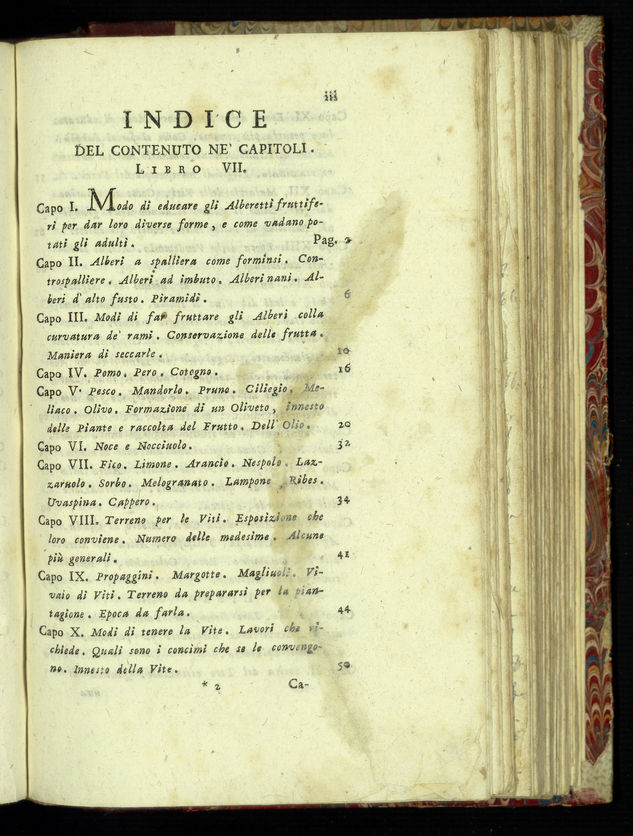 iii
INDICE
DEL CONTENUTO NE' CAPITOLI.
LIBRO VII.
Capo I. Modo di educare gli Alberetti fruttife-
ri per dar loro diverse forme, e come vadano po-
tati gli adulti. Pag. 2
Capo II. Alberi a spalliera come forminsi. Con-
trospalliere. Alberi ad imbuto. Alberi nani. Al-
beri d'alto fusto. Piramidi. 6
Capo III. Modi di far fruttare gli Alberi colla
curvatura de' rami. Conservazione delle frutta.
Maniera di seccarle. 10
Capo IV. Pomo. Pero. Cotogno. 16
Capo V. Pesco. Mandorlo. Pruno. Ciliegio. Me-
liaco. Olivo. Formazione di un Oliveto, innesto
delle Piante e raccolta del Frutto. Dell'Olio. 20
Capo VI. Noce e Nocciuolo. 32
Capo VII. Fico. Limone. Arancio. Nespolo. Laz-
zaruolo. Sorbo. Melogranato. Lampone. Ribes.
Uvaspina. Cappero. 34
Capo VIII. Terreno per le Viti. Esposizione che
loro conviene. Numero delle medesime. Alcune
più generali. 41
Capo IX. Propaggini. Margotte. Magliuoli. Vi-
vaio di Viti. Terreno da prepararsi per la pian-
tagione. Epoca da farla. 44
Capo X. Modi di tenere la Vite. Lavori che ri-
chiede. Quali sono i concimi che se le convengo-
no. Innesto della Vite. 50
* 2 Ca-